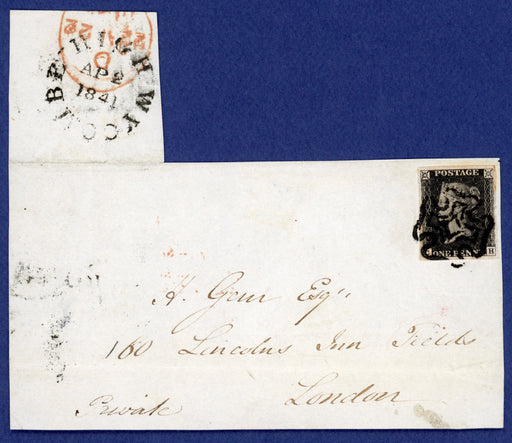 HIGH WYCOMBE
AP 2
1841
D
POSTAGE
ONE PENNY
H
H. Gem Esqr
160 Lincolns Inn Fields
London
Private